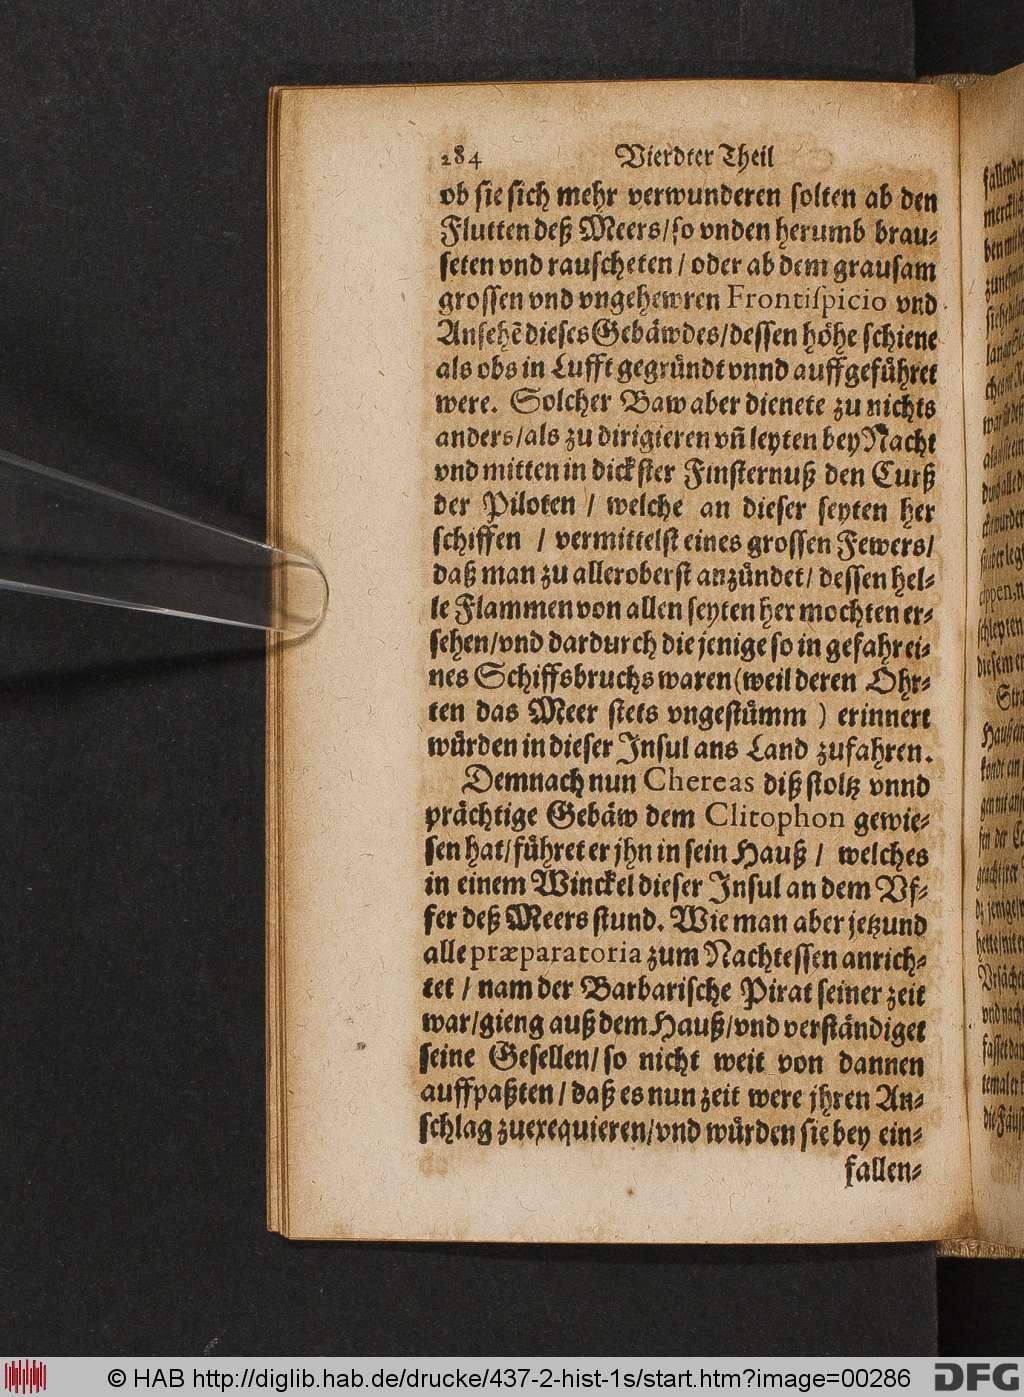 284 Vierdter Theil
ob sie sich mehr verwunderen solten ab den
Flutten deß Meers/so vnden herumb brau-
seten vnd rauscheten / oder ab dem grausam
grossen vnd vngehewren Frontiſpicio vnd
Ansehẽ dieses Gebäwdes/dessen höhe schiene
als obs in Lufft gegründt vnnd auffgeführet
were. Solcher Baw aber dienete zu nichts
anders/als zu dirigieren vñ leyten bey Nacht
vnd mitten in dickster Finsternuß den Curß
der Piloten / welche an dieser seyten her
schiffen / vermittelst eines grossen Fewers/
daß man zu alleroberst anzündet/ dessen hel-
le Flammen von allen seyten her mochten er-
sehen/vnd dardurch die jenige so in gefahr ei-
nes Schiffsbruchs waren (weil deren Ohr-
ten das Meer stets vngestümm ) erinnert
würden in dieser Insul ans Land zufahren.
Demnach nun Chereas diß stoltz vnnd
prächtige Gebäw dem Clitophon gewie-
sen hat/führet er jhn in sein Hauß / welches
in einem Winckel dieser Insul an dem Vf-
fer deß Meers stund. Wie man aber jetzund
alle præparatoria zum Nachtessen anrich-
tet / nam der Barbarische Pirat seiner zeit
war/gieng auß dem Hauß/vnd verständiget
seine Gesellen/ so nicht weit von dannen
auffpaßten / daß es nun zeit were jhren An-
schlag zuexequieren/vnd würden sie bey ein-
fallen-
© HAB http://diglib.hab.de/drucke/437-2-hist-1s/start.htm?image=00286
DFG